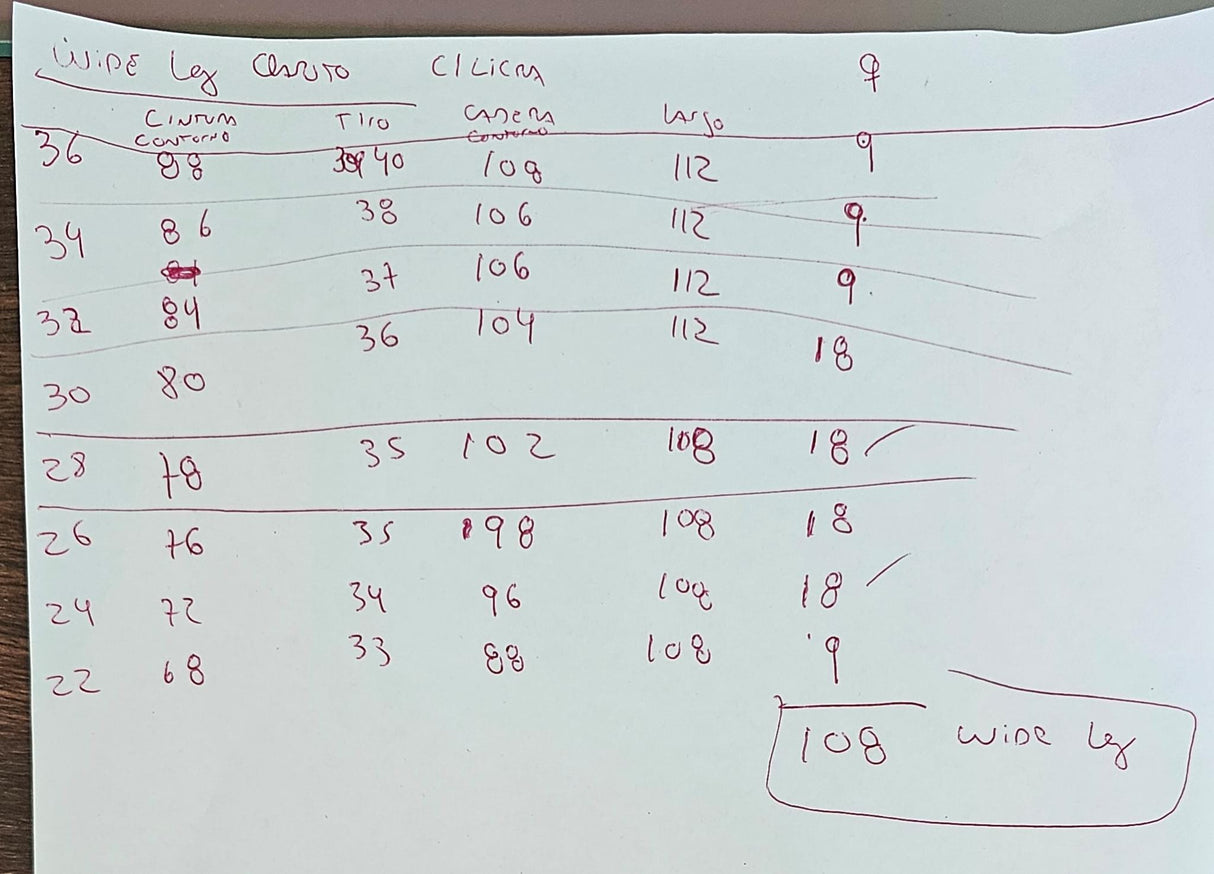 WIDE Leg C/LICRA
CINTURA TIRO CADERA Largo
CONTORNO CONTORNO
36 88 40 108 112 9
34 86 38 106 112 9.
32 84 37 106 112 9.
30 80 36 104 112 18
28 78 35 102 108 18
26 76 35 98 108 18
24 72 34 96 108 18
22 68 33 88 108 9
108 WIDE Leg